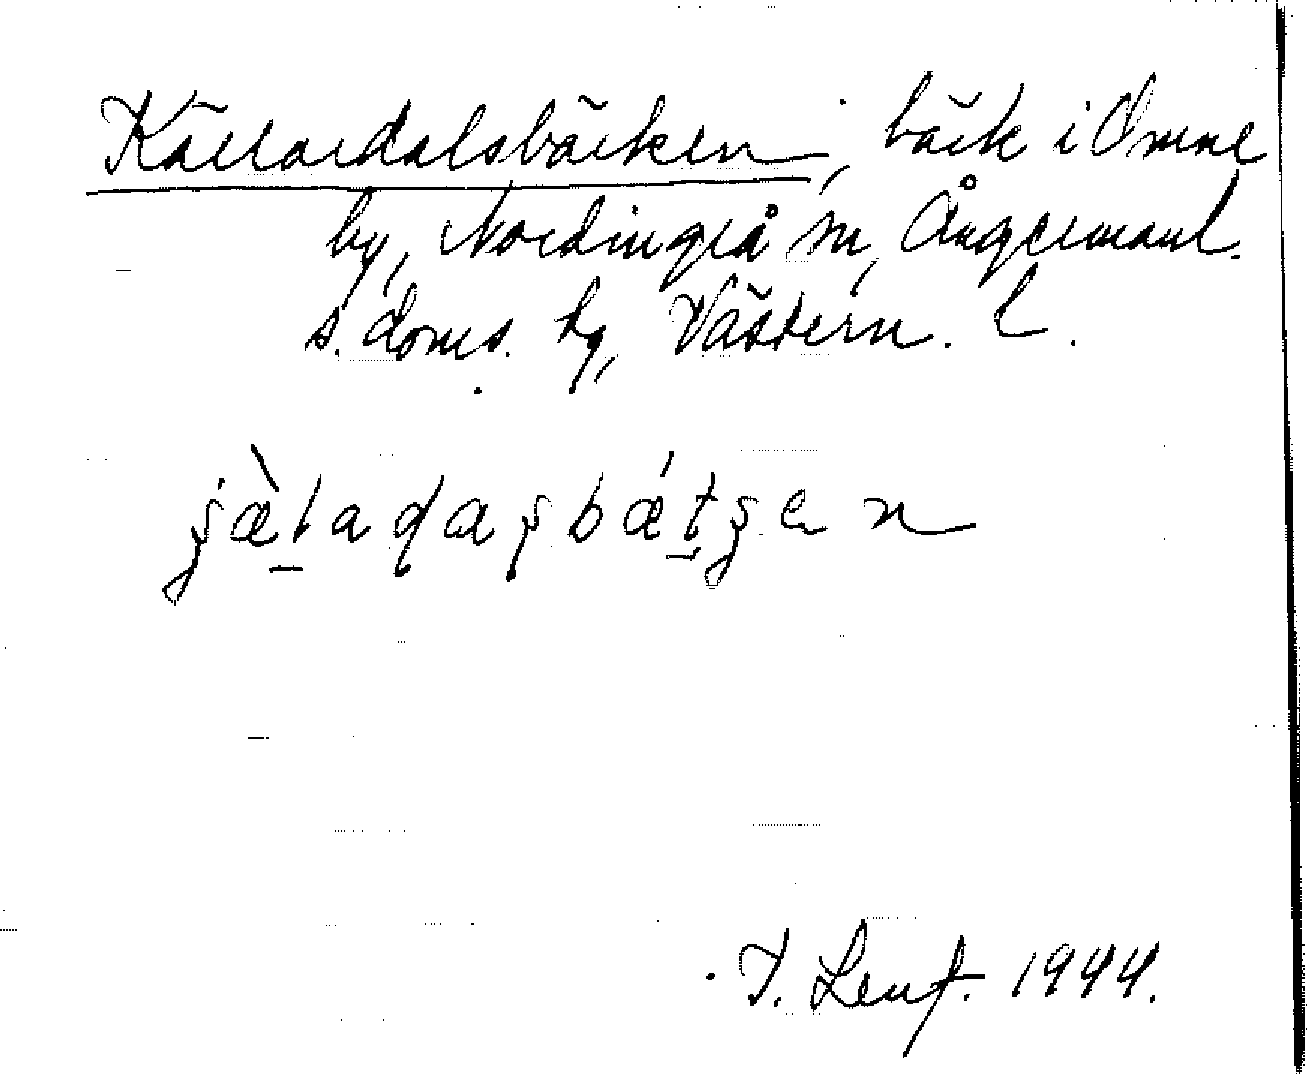 Källardalsbäcken, bäck i Omne
by, Nordingrå sn, Ångermanl.
s. doms. hg, Västern. l.
T. Lenf. 1944.